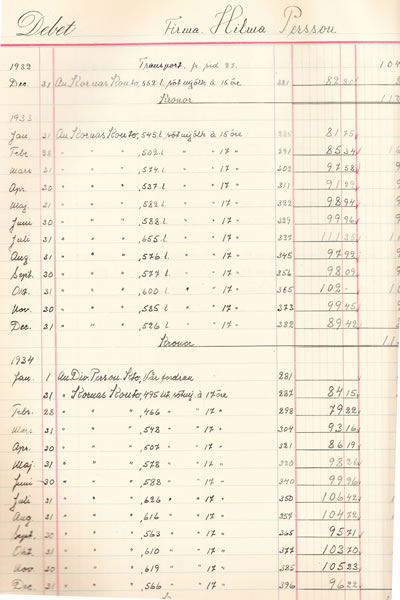 Debet Firma. Hilma Persson
1932 Transport. fr. sid 27. 104
Dec. 31 An Kornas Konto, 552 l. söt mjölk à 15 öre 281 82 80
Kronor 113
1933
Jan. 31 An Kornas Konto, 545 l. söt mjölk à 15 öre 286 81 75
Febr. 28 " " " , 502 l. " " 17 " 291 85 34
Mars 31 " " " , 574 l. " " 17 " 302 97 58
Apr. 30 " " " , 537 l. " " 17 " 311 91 29
Maj 31 " " " , 582 l. " " 17 " 322 98 94
Juni 30 " " " , 588 l. " " 17 " 329 99 96
Juli 31 " " " , 655 l. " " 17 " 337 111 35
Aug. 31 " " " , 576 l. " " 17 " 345 97 92
Sept. 30 " " " , 577 l. " " 17 " 356 98 09
Okt. 31 " " " , 600 l. " " 17 " 365 102 -
Nov. 30 " " " , 585 l. " " 17 " 373 99 45
Dec. 31 " " " , 526 l. " " 17 " 382 89 42
Kronor
1934
Jan. 1 An Div. Perssou Kto, Vår fordran 281
31 " Kornas Konto, 495 lit. sötmj. à 17 öre 287 84 15
Febr. 28 " " " , 466 " " 17 " 298 79 22
Mars 31 " " " , 548 " " 17 " 304 93 16
Apr. 30 " " " , 507 " " 17 " 321 86 19
Maj 31 " " " , 578 " " 17 " 330 98 26
Juni 30 " " " , 588 " " 17 " 340 99 96
Juli 31 " " " , 626 " " 17 " 350 106 42
Aug. 31 " " " , 616 " " 17 " 357 104 72
Sept. 30 " " " , 563 " " 17 " 365 95 71
Okt. 31 " " " , 610 " " 17 " 377 103 70
Nov. 30 " " " , 619 " " 17 " 385 105 23
Dec. 31 " " " , 566 " " 17 " 396 96 22